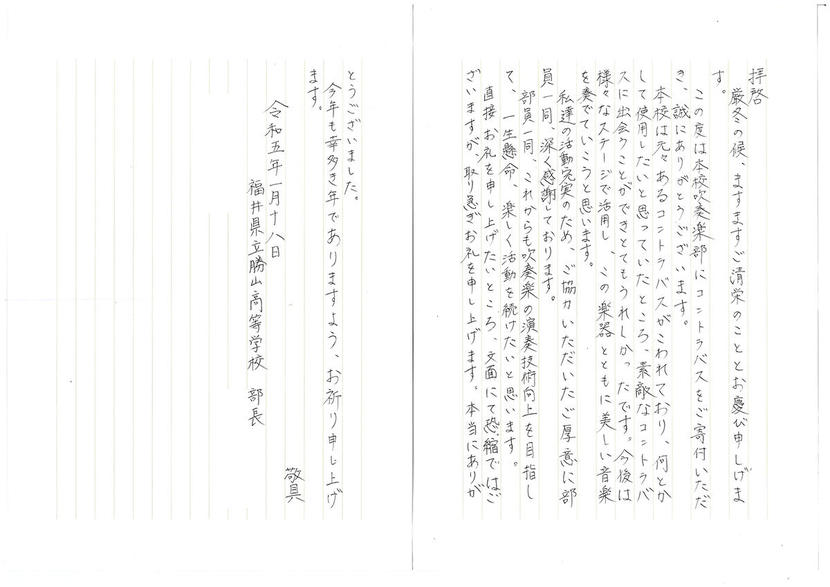 拝啓
厳冬の候、ますますご清栄のこととお慶び申しげま
す。
この度は本校吹奏楽部にコントラバスをご寄付いただ
き、誠にありがとうございます。
本校は元々あるコントラバスがこわれており、何とか
して使用したいと思っていたところ、素敵なコントラバ
スに出会うことができとてもうれしかったです。今後は
様々なステージで活用し、この楽器とともに美しい音楽
を奏でていこうと思います。
私達の活動充実のため、ご協力いただいたご厚意に部
員一同、深く感謝しております。
部員一同、これからも吹奏楽の演奏技術向上を目指し
て、一生懸命、楽しく活動を続けたいと思います。
直接お礼を申し上げたいところ、文面にて恐縮ではご
ざいますが、取り急ぎお礼を申し上げます。本当にありが
とうございました。
今年も幸多き年でありますよう、お祈り申し上げ
ます。
敬具
令和五年一月十八日
福井県立勝山高等学校 部長